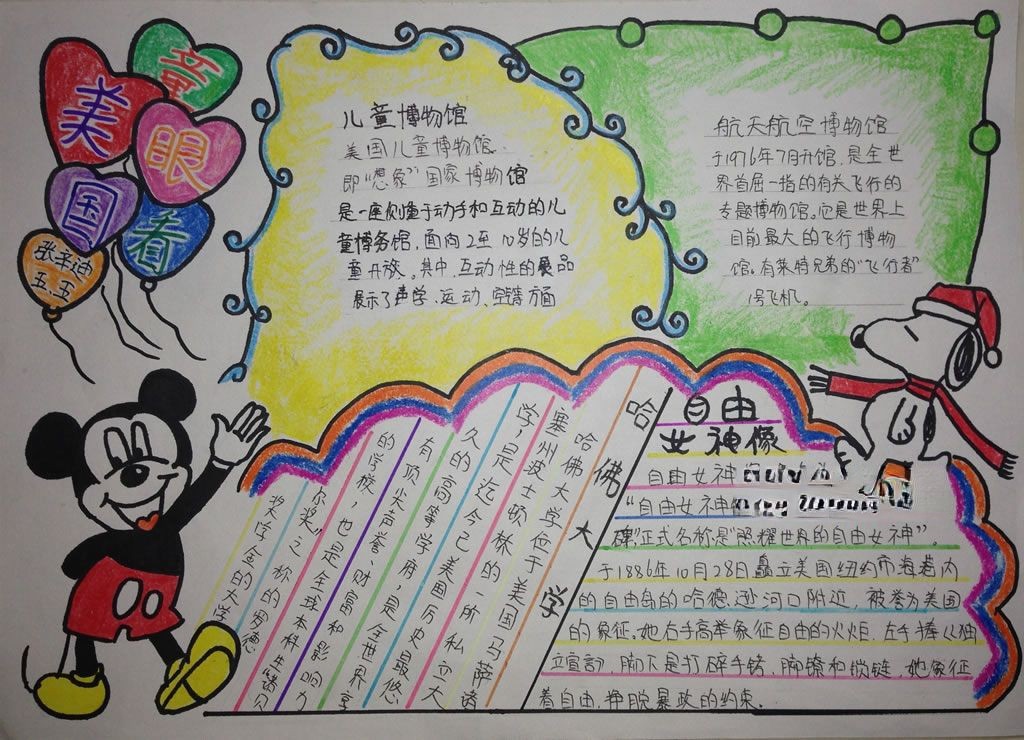 童
美
眼
国
看
五.五
儿童博物馆
美国儿童博物馆.
即“想象”国家博物馆
是一座侧重于动手和互动的儿
童博务馆,面向2至10岁的儿
童开放。其中,互动性的展品
展示了声学、运动、空气等方面
航天航空博物馆
于1976年7月开馆,是全世
界首屈一指的有关飞行的
专题博物馆。它是世界上
目前最大的飞行博物
馆。有莱特兄弟的“飞行者”
1号飞机。
哈佛大学
哈佛大学位于美国马萨诸
塞州波士顿林的一所私立大
学,是迄今已美国历史最悠
久的高等学府,是全世界享
有顶尖声誉、财富和影响力
的学校,也是全球本科生诸贝
尔奖”之称的罗德
奖学金的大学
自由
女神像
自由女神
“自由女神像
碑”正式名称是“照耀世界的自由女神”。
于1886年10月28日矗立美国纽约市海港内
的自由岛的哈德逊河口附近,被誉为美国
的象征。她右手高举象征自由的火炬,左手捧《独
立宣言》,脚下是打碎手铐、脚镣和锁链,她象征
着自由,挣脱暴政的约束。